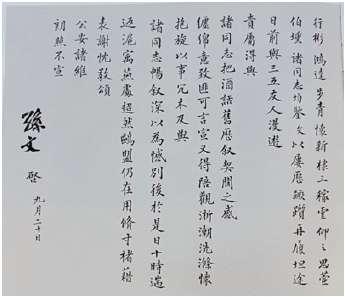 行彬 鴻逵 步青 懷新 棣工 稼雲 仰之 思萱
伯壎 諸同志均鑒 文以屢歷艱躓再復坦途
日前與三五友人漫遊
貴屬得與
諸同志把酒話舊歷叙契闊之感
纏綿意致匪可言宣又得陪觀浙潮洗滌懷
抱旋以事冗未及與
諸同志暢叙深以為憾別後於是日十時遄
返滬寓燕處超然鷗盟仍在用脩寸楮藉
表謝忱敬頌
公安諸維
朗照不宣
孫文 啓
九月二十日